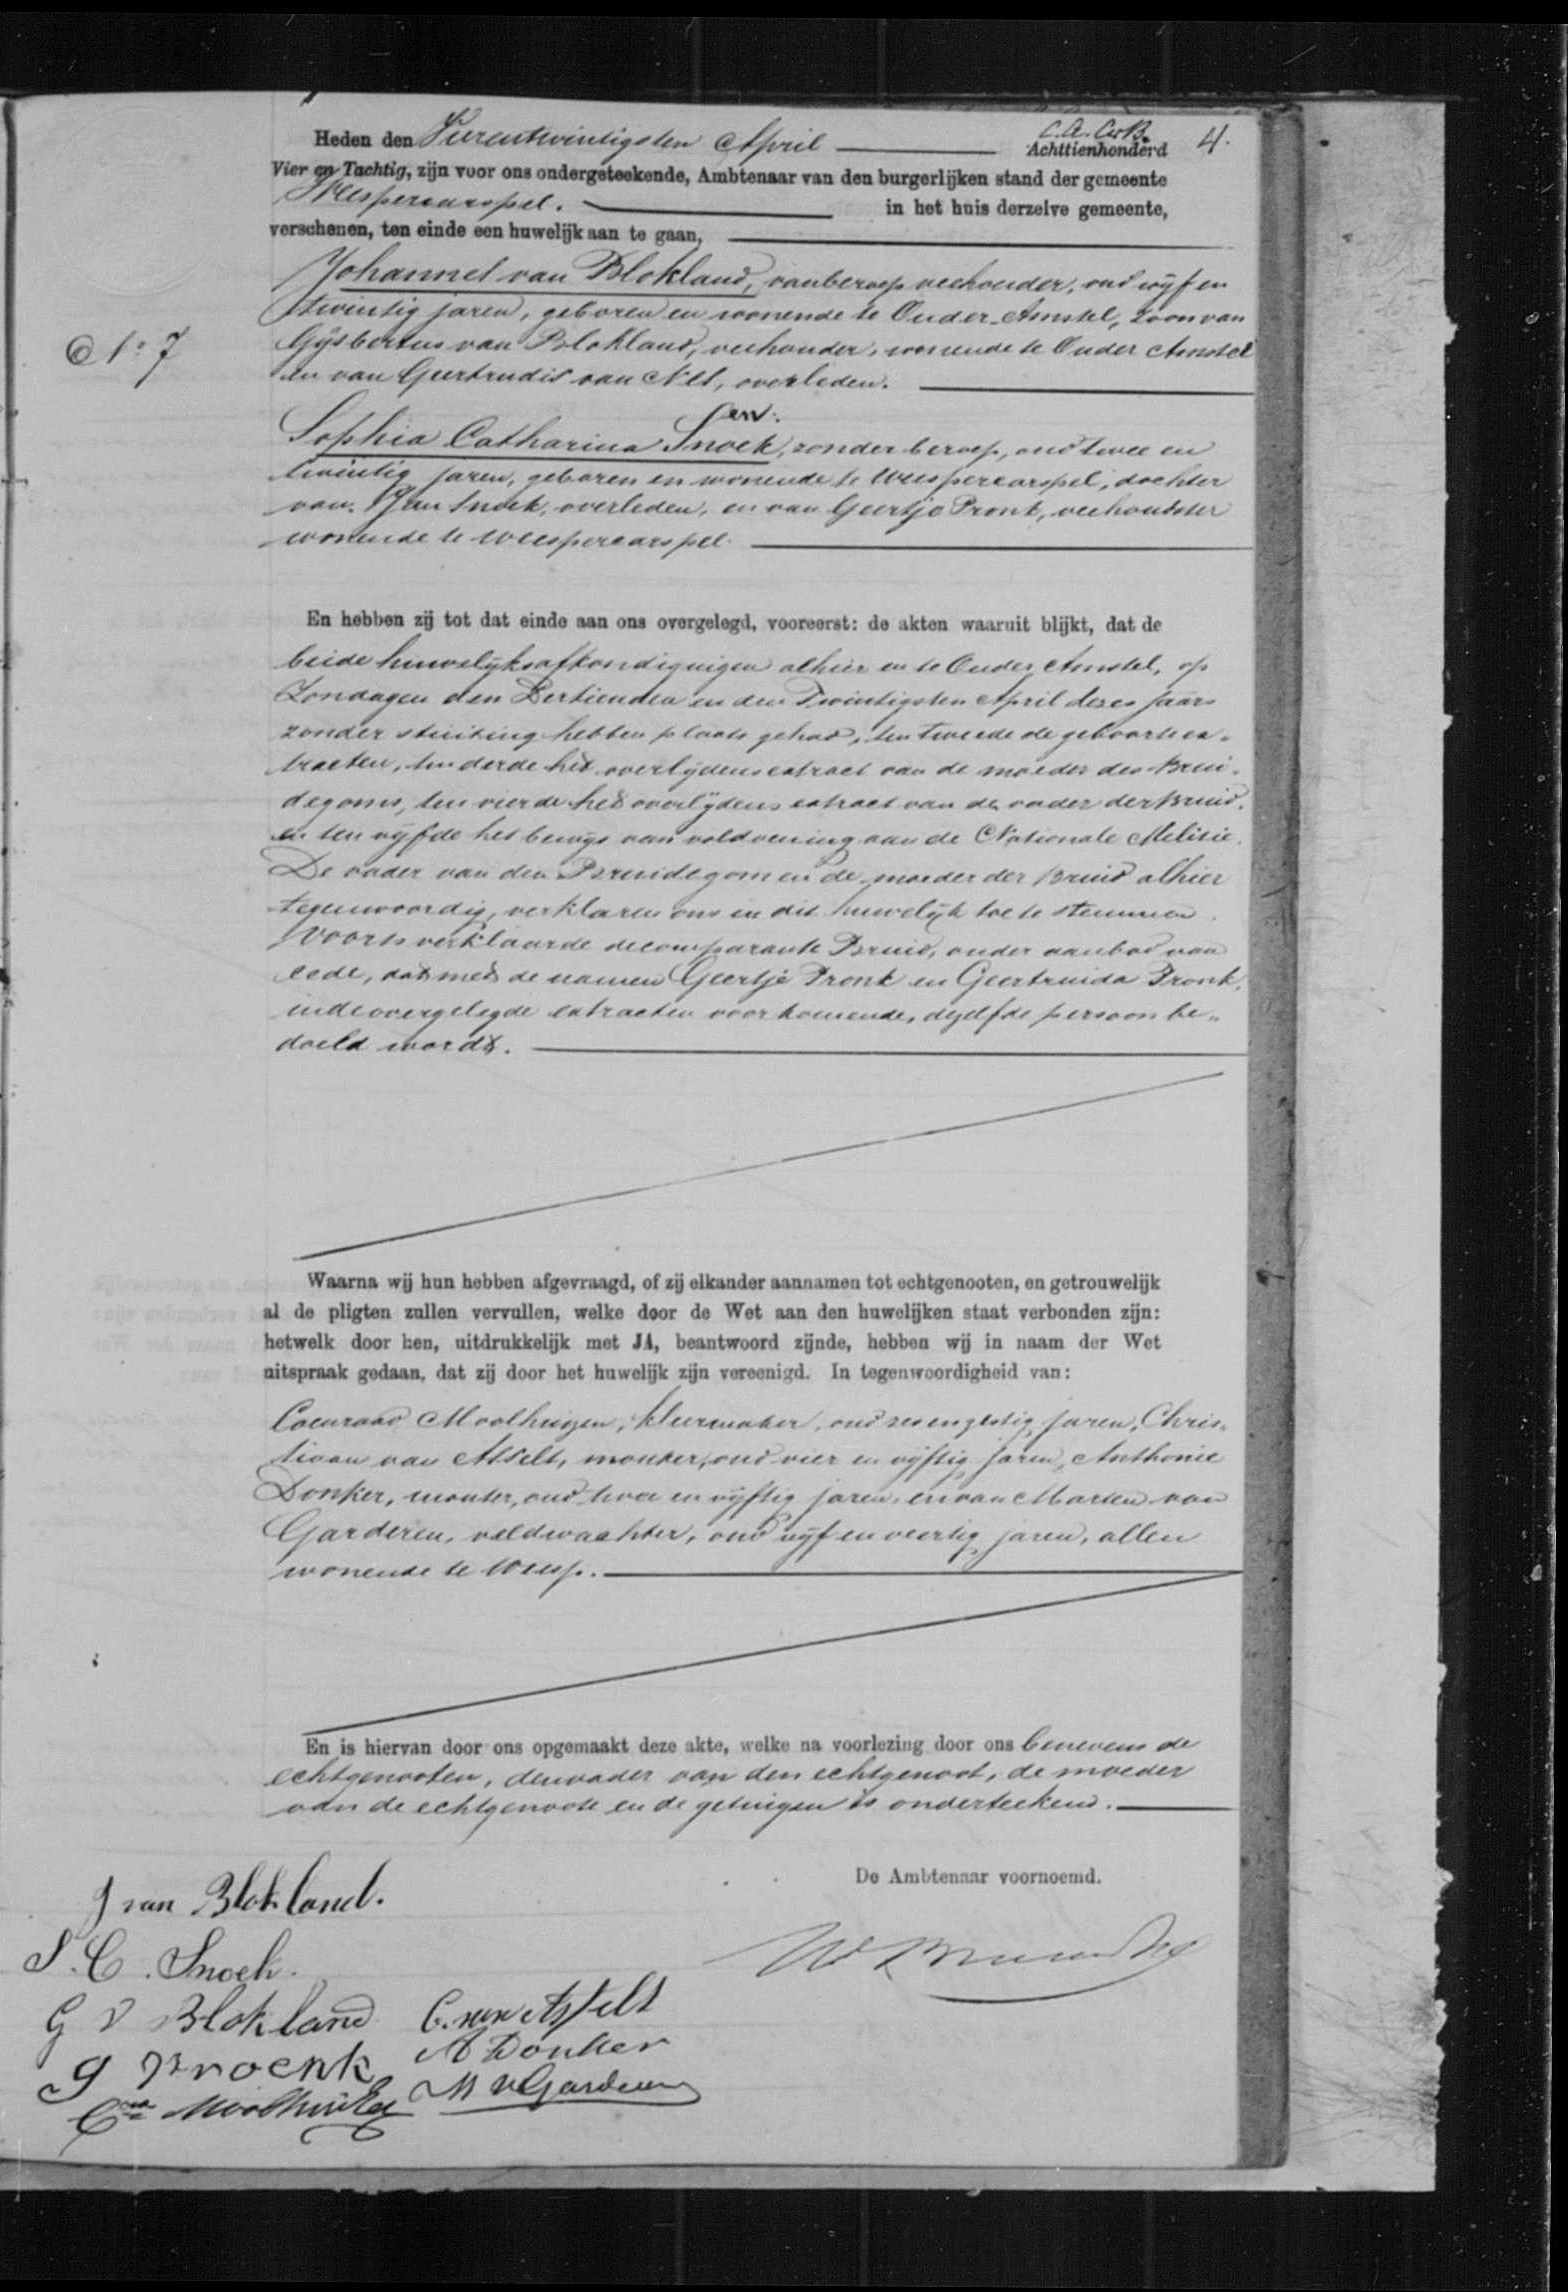 C. A. C. v. B. 4.
Heden den Vierentwintigsten April Achttienhonderd
Vier en Tachtig, zijn voor ons ondergeteekende, Ambtenaar van den burgerlijken stand der gemeente
Weespercarspel. in het huis derzelve gemeente,
verschenen, ten einde een huwelijk aan te gaan,
Johannes van Blokland, van beroep veehouder, oud vijf en
twintig jaren, geboren en wonende te Ouder-Amstel, zoon van
No 7
Gijsbertus van Blokland, veehouder, wonende te Ouder Amstel
en van Geertrudis van Nes, overleden.
en.
Sophia Catharina Snoek, zonder beroep, oud twee en
twintig jaren, geboren en wonende te Weespercarspel, dochter
van Jan Snoek, overleden, en van Geertje Pronk, veehoudster
wonende te Weespercarspel.
En hebben zij tot dat einde aan ons overgelegd, vooreerst: de akten waaruit blijkt, dat de
beide huwelijksafkondigingen alhier en te Ouder Amstel, op
Zondagen den Dertienden en den Twintigsten April dezes jaars
zonder stuiting hebben plaats gehad, ten tweede de geboorteex-
tracten, ten derde het overlijdensextract van de moeder des Brui-
degoms, ten vierde het overlijdens extract van den vader der Bruid,
en ten vijfde het bewijs van voldoening aan de Nationale Militie.
De vader van den Bruidegom en de moeder der Bruid alhier
tegenwoordig, verklaren ons in dit huwelijk toe te stemmen.
Voorts verklaarde de comparante Bruid, onder aanbod van
eede, dat met de namen Geertje Pronk en Geertruida Pronk,
in de overgelegde extracten voorkomende, dezelfde persoon be-
doeld wordt.
Waarna wij hun hebben afgevraagd, of zij elkander aannamen tot echtgenooten, en getrouwelijk
al de pligten zullen vervullen, welke door de Wet aan den huwelijken staat verbonden zijn:
hetwelk door hen, uitdrukkelijk met JA, beantwoord zijnde, hebben wij in naam der Wet
uitspraak gedaan, dat zij door het huwelijk zijn vereenigd. In tegenwoordigheid van:
Coenraad Moolhuijzen, kleermaker, oud zes en zestig jaren, Chris-
tiaan van Asselt, oud vier en vijftig jaren, Anthonie
Donker, oud twee en vijftig jaren, en van Marten van
Garderen, veldwachter, oud vijf en veertig jaren, allen
wonende te Weesp.
En is hiervan door ons opgemaakt deze akte, welke na voorlezing door ons benevens de
echtgenooten, den vader van den echtgenoot, de moeder
van de echtgenoote en de getuigen is onderteekend.
De Ambtenaar voornoemd.
J van Blokland.
S. C. Snoek.
G V Blokland C. van Asselt
gProenk A Donker
M v Garderen